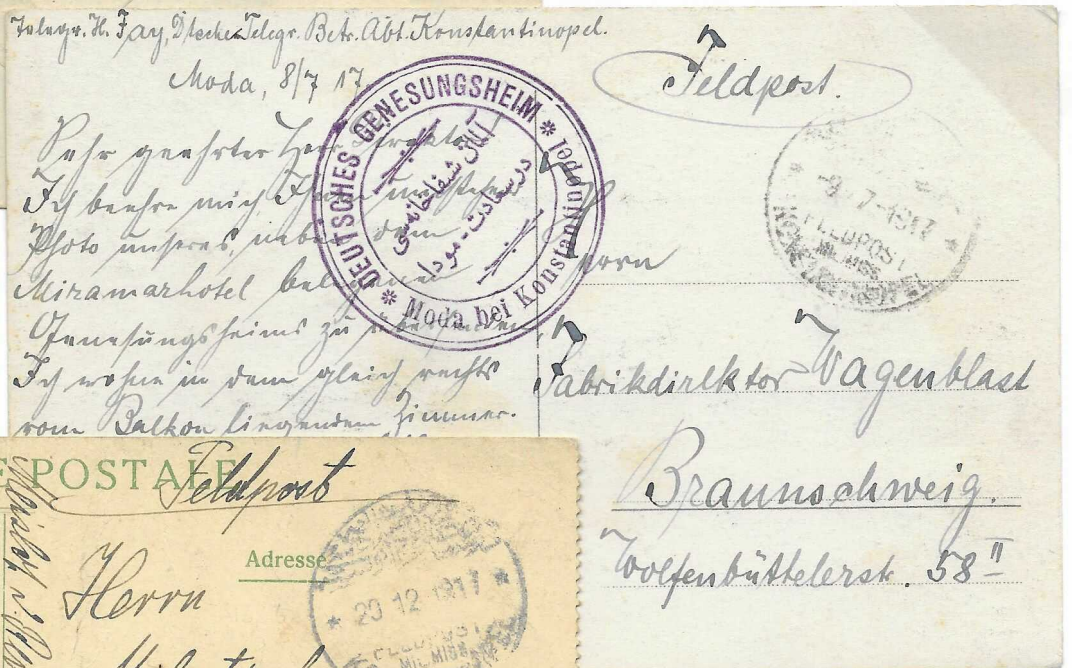 Telegr. H. Fay, Dtsche Telegr. Betr. Abt. Konstantinopel.
Moda, 8/7 17
Sehr geehrter Herr
Ich beehre mich, Ihnen
Photo unseres, neben dem
Miramarhotel belegenen
Genesungsheims zu
Ich wohne in dem gleich rechts
vom Balkon liegendem Zimmer.
* DEUTSCHES GENESUNGSHEIM *
Moda bei Konstantinopel
آلمان شفاخانه‌سی
درسعادت - مودا
Feldpost.
-9. 7-1917
FELDPOST
MIL. MISS.
Herrn
Fabrikdirektor Wagenblast
Braunschweig.
Wolfenbüttelerstr. 58 II
POSTALE
Feldpost
Adresse
Herrn
* 20 12 1917 *
FELDPOST
MIL. MISS.